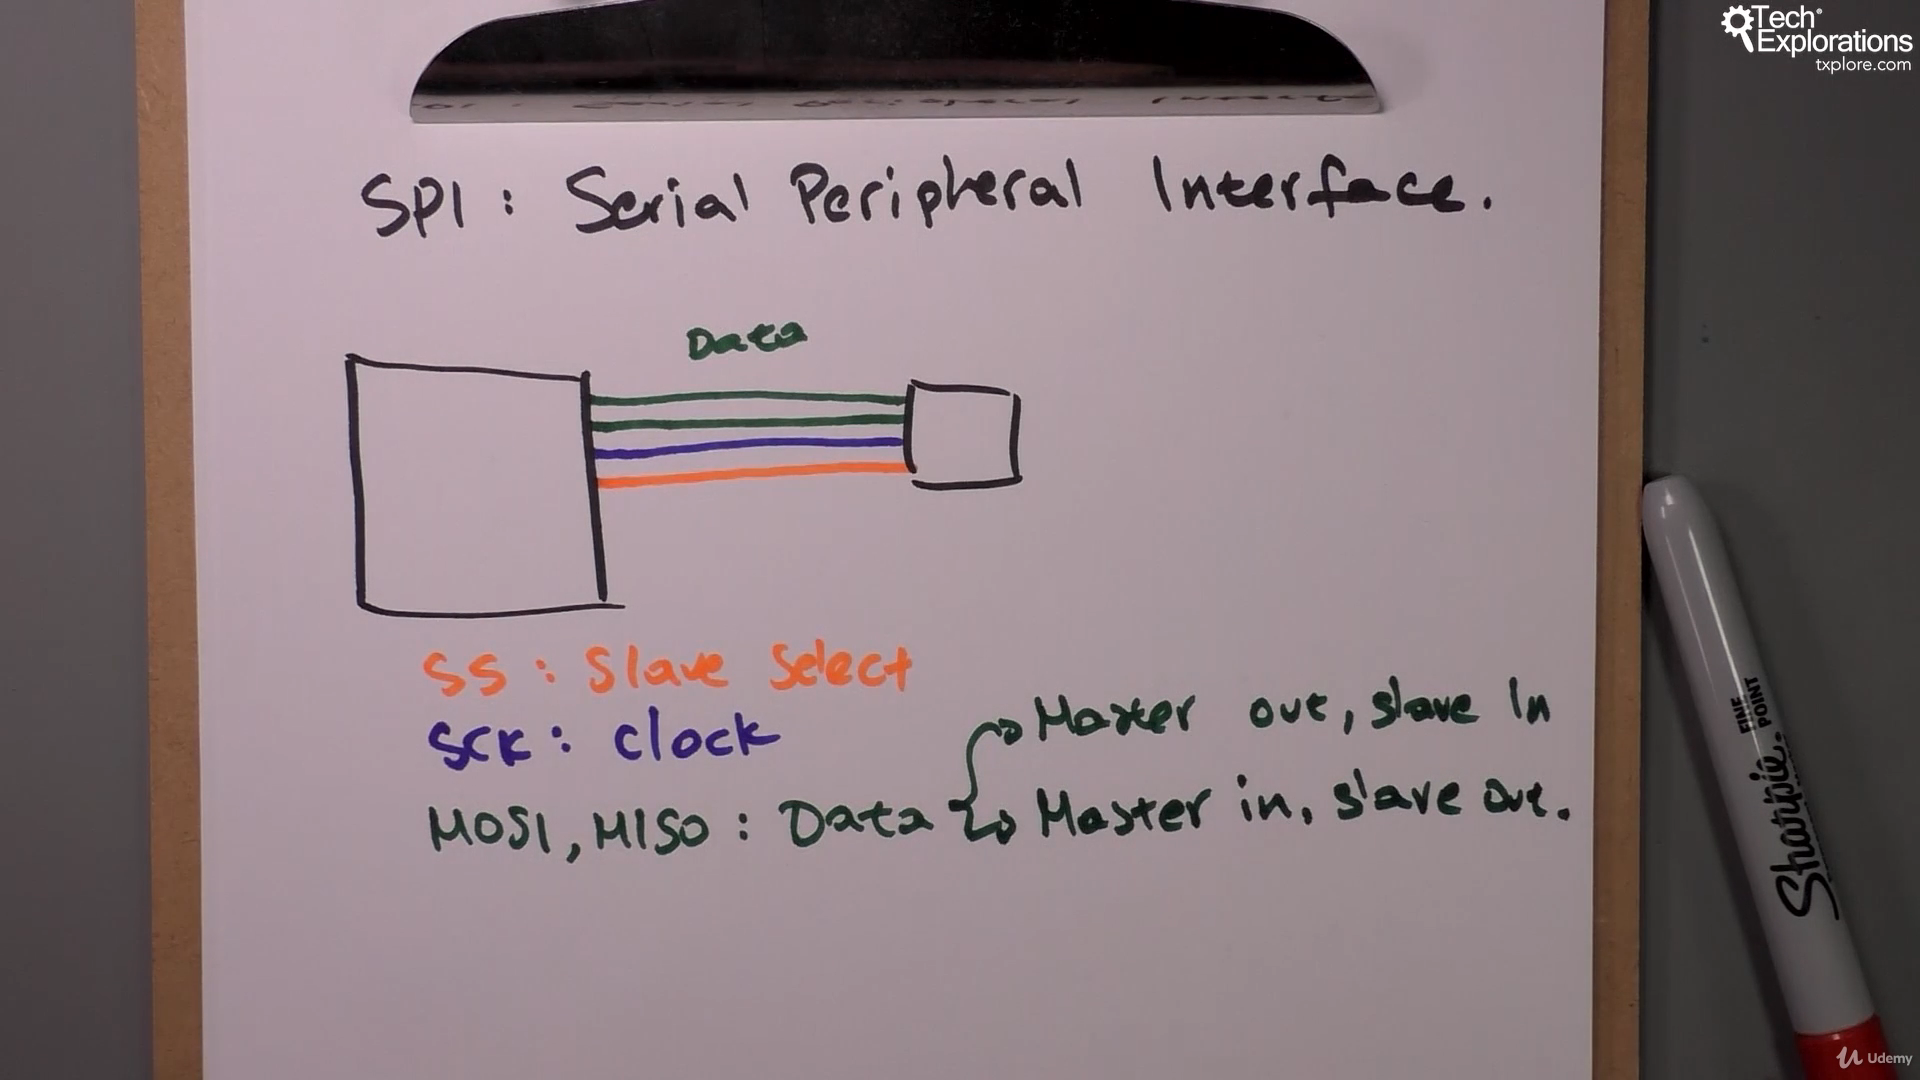 Tech
Explorations
txplore.com
SPI : Serial Peripheral Interface.
Data
SS : Slave Select
SCK : Clock
Master out, slave In
MOSI, MISO : Data
Master in, slave out.
FINE
POINT
Sharpie.
Udemy